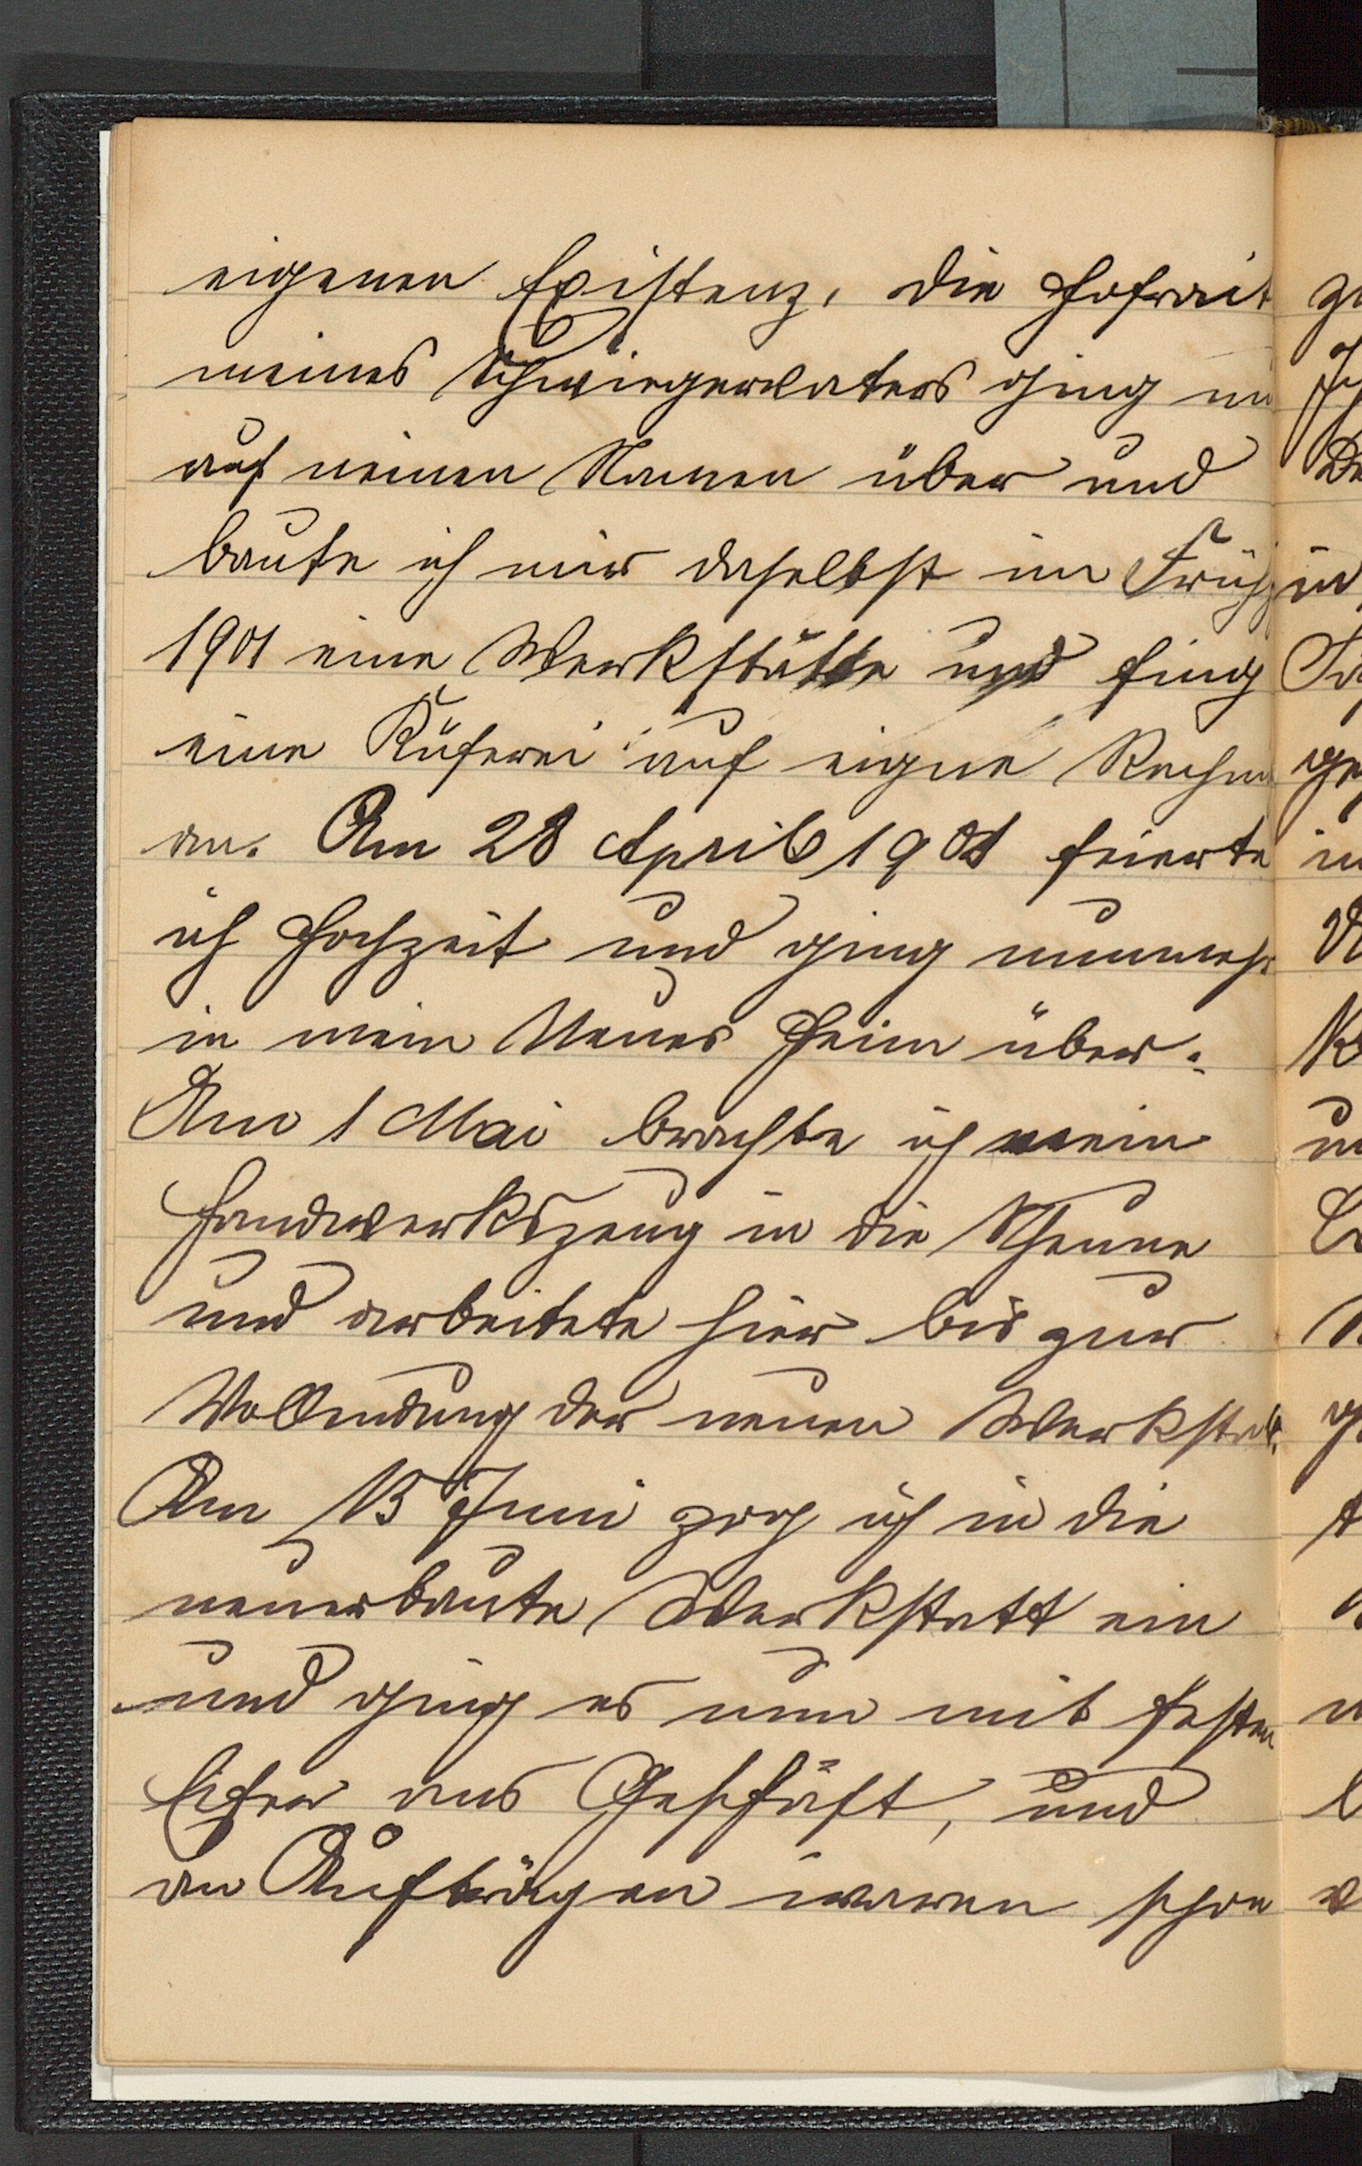 eigenen Existenz, die Hofrait
meines Schwiegervaters ging nu
auf meinen Namen über und
baute ich mir daselbst im Frühj
1901 eine Werkstätte und fing
eine Küferei auf eigne Rechn
an. Am 28 April 1901 feierte
ich Hochzeit und ging nunmehr
in mein Neues Heim über.
Am 1 Mai brachte ich mein
Handwerkszeug in die Scheune
und arbeitete hier bis zur
Vollendung der neuen Werkstatt.
Am 15 Juni zog ich in die
neuerbaute Werkstatt ein
und ging es nun mit festen
Eifer ans Geschäft, und
an Aufträgen waren schon